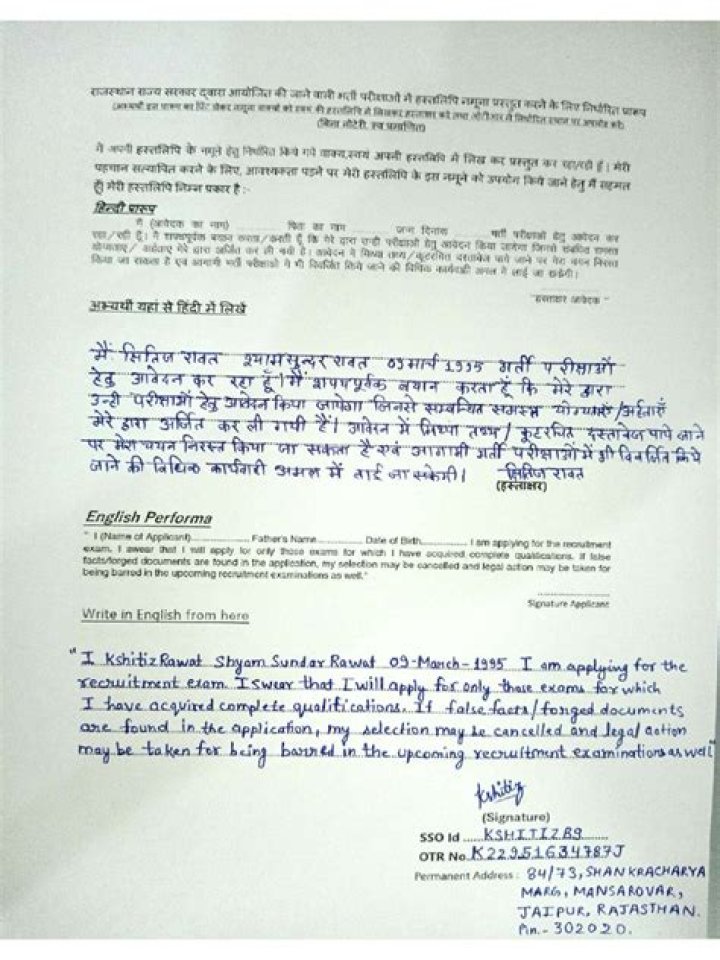 राजस्थान राज्य सरकार द्वारा आयोजित की जाने वाली भर्ती परीक्षाओं में हस्तलिपि नमूना प्रस्तुत करने के लिए निर्धारित प्रारूप
(बिना नोटेरी, स्व प्रमाणित)
मैं अपनी हस्तलिपि के नमूने हेतु निर्धारित किये गये वाक्य,स्वयं अपनी हस्तलिपि में लिख कर प्रस्तुत कर रहा/रही हूँ। मेरी
पहचान सत्यापित करने के लिए, आवश्यकता पड़ने पर मेरी हस्तलिपि के इस नमूने को उपयोग किये जाने हेतु मैं सहमत
हूँ। मेरी हस्तलिपि निम्न प्रकार है :-
हिन्दी प्रारूप
मैं (आवेदक का नाम) .................. पिता का नाम .................. जन्म दिनांक .................. भर्ती परीक्षाओं हेतु आवेदन कर
रहा/रही हूँ। मैं शपथपूर्वक बयान करता/करती हूँ कि मेरे द्वारा उन्हीं परीक्षाओं हेतु आवेदन किया जायेगा जिनसे संबंधित समस्त
योग्यताएं/ अर्हताएं मेरे द्वारा अर्जित कर ली गयी है। आवेदन में मिथ्या तथ्य/कूटरचित दस्तावेज पाये जाने पर मेरा चयन निरस्त
किया जा सकता है एवं आगामी भर्ती परीक्षाओं में भी विवर्जित किये जाने की विधिक कार्यवाही अमल में लाई जा सकेगी।
हस्ताक्षर आवेदक "
अभ्यर्थी यहां से हिंदी में लिखें
मैं क्षितिज रावत श्यामसुन्दर रावत 09 मार्च 1995 भर्ती परीक्षाओं
हेतु आवेदन कर रहा हूँ। मैं शपथपूर्वक बयान करता हूँ कि मेरे द्वारा
उन्ही परीक्षाओं हेतु आवेदन किया जायेगा जिनसे सम्बन्धित समस्त योग्यताएं/अर्हताएँ
मेरे द्वारा अर्जित कर ली गयी है। आवेदन में मिथ्या तथ्य/ कुटरचित दस्तावेज पाये जाने
पर मेरा चयन निरस्त किया जा सकता है एवं आगामी भर्ती परीक्षाओं में भी विवर्जित किये
जाने की विधिक कार्यवाही अमल में लाई जा सकेगी। क्षितिज रावत
(हस्ताक्षर)
English Performa
" I (Name of Applicant).................. Father's Name.............. Date of Birth.............. I am applying for the recruitment
exam. I swear that I will apply for only those exams for which I have acquired complete qualifications. If false
facts/forged documents are found in the application, my selection may be cancelled and legal action may be taken for
being barred in the upcoming recruitment examinations as well."
Signature Applicant
Write in English from here
"I Kshitiz Rawat Shyam Sundar Rawat 09-March-1995 I am applying for the
recruitment exam. I swear that I will apply for only those exams for which
I have acquired complete qualifications. If false facts/forged documents
are found in the application, my selection may be cancelled and legal action
may be taken for being barred in the upcoming recruitment examinations as well"
Kshitiz
(Signature)
SSO Id ......KSHITIZ89........
OTR No.K22951634787J
Permanent Address : 84/73, SHANKRACHARYA
MARG, MANSAROVAR,
JAIPUR, RAJASTHAN.
Pin.- 302020.